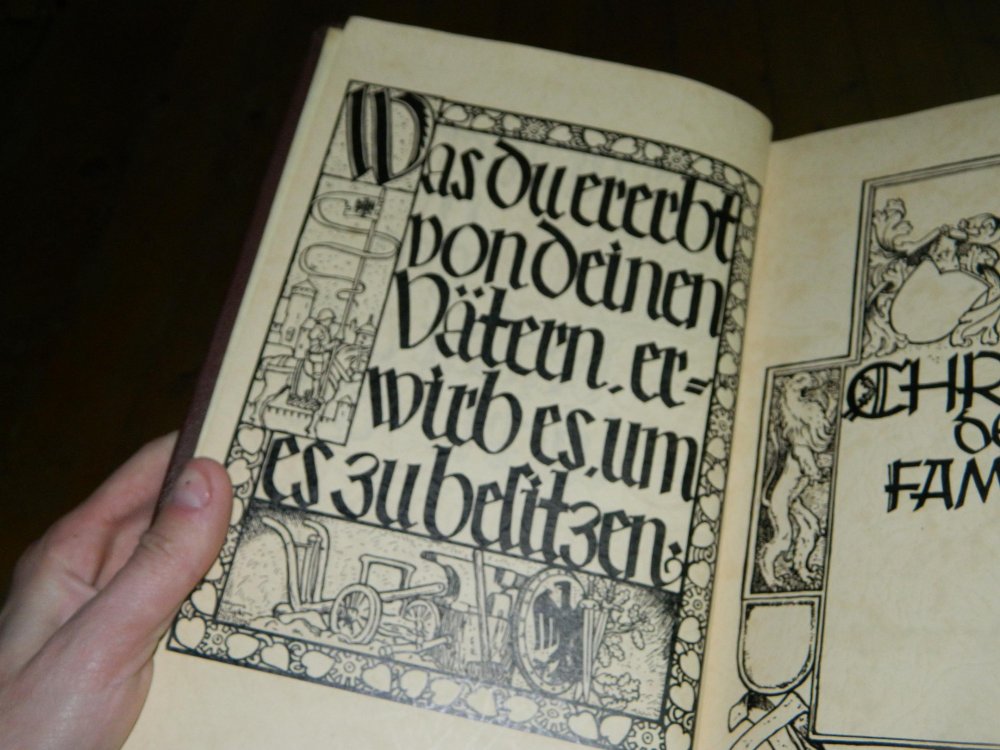 Was du ererbt
von deinen
Vätern, er=
wirb es, um
es zu besitzen;